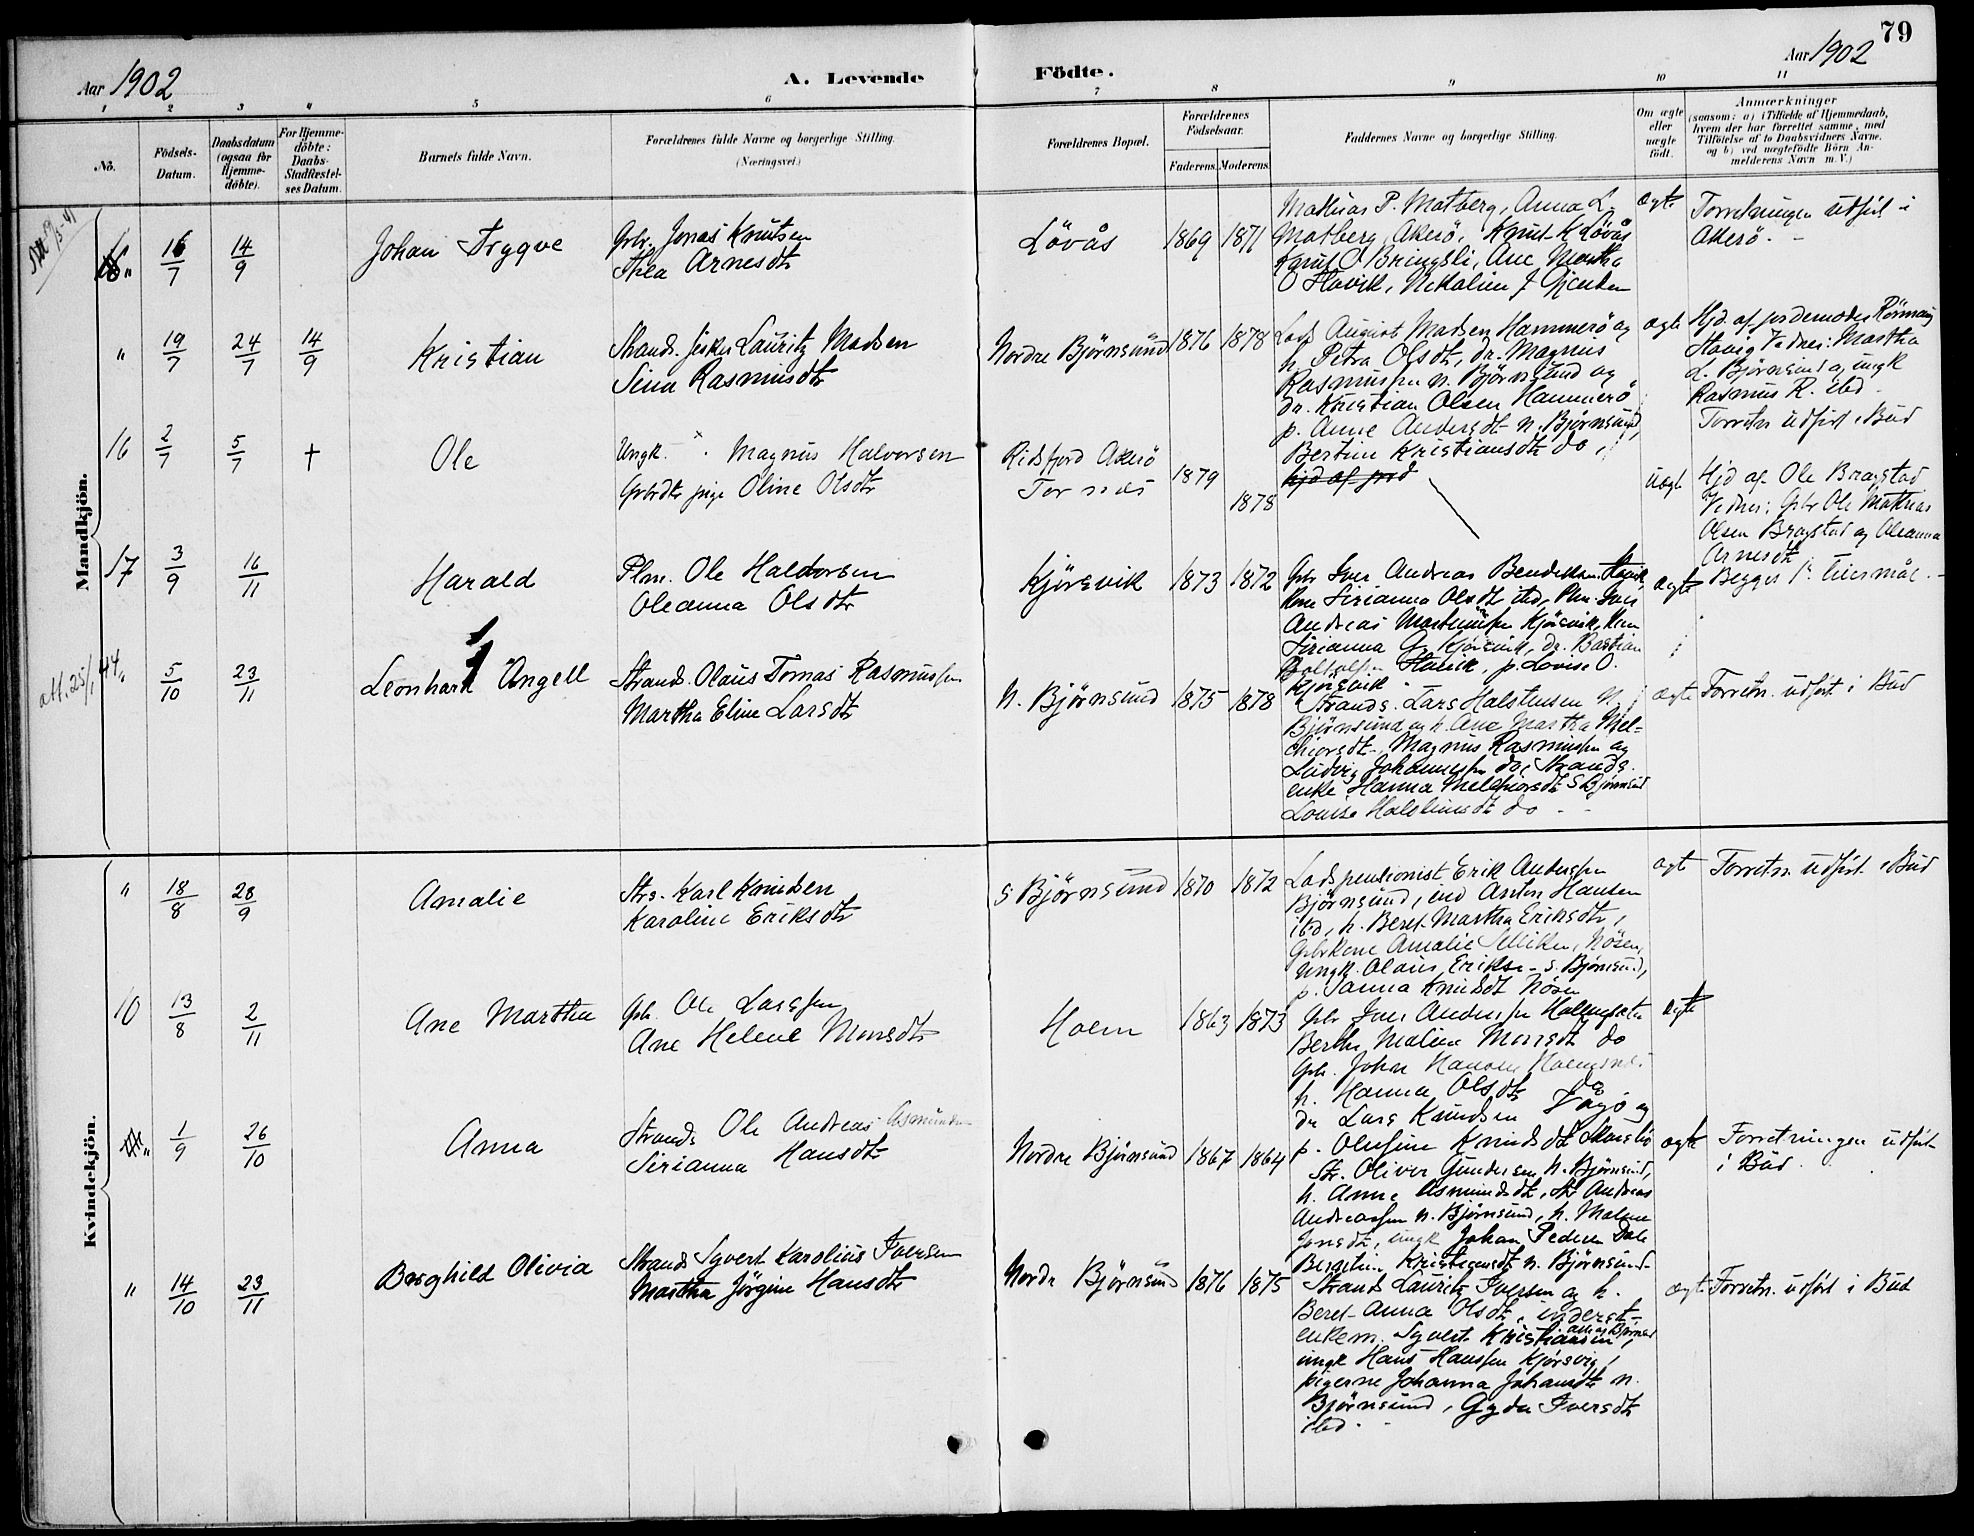 79
Aar 1902
A. Levende Födte.
Aar 1902
1 2 3 4 5 6 7 8 9 10 11
No.
Födsels-Datum.
Daabsdatum (ogsaa for Hjemme-döbte).
For Hjemme-döbte: Daabs-Stadfæstel-ses Datum.
Barnets fulde Navn.
Forældrenes fulde Navne og borgerlige Stilling.
(Næringsvei.)
Forældrenes Bopæl.
Forældrenes Födselsaar.
Faderens. Moderens.
Faddernes Navne og borgerlige Stilling.
Om ægte eller uægte födt.
Anmærkninger
(saasom: a) i Tilfælde af Hjemmedaab,
hvem der har forrettet samme, med
Tilföielse af to Daabsvidners Navne.
og b) ved uægtefödte Börn An-
melderens Navn m. V.)
Mandkjön.
" 16/7 14/9
Johan Trygve
Gbr. Jonas Knutsen
Thea Arnesdtr
Lövås
1869 1871
Mathias P. Matberg, Anna L.
Matberg, Akerö, Knut K Lövås
Knut O Bringsli, Ane Martha
O Havik, Nikoline J
ægte
Forretningen udfört i
Akerö. -
" 19/7 24/7 14/9
Kristian
Strands. fisker Lauritz Madsen
Sina Rasmusdtr
Nordre Björnsund
1876 1878
Lods August Madsen Hammerö og
h. Petra Olsdtr, dr. Magnus
Rasmussen n. Björnsund og
dr. Kristian Olsen Hammerö
p. Anne Andersdt n. Björnsund,
Bertine Kristiansdtr do,
ægte
Hjd. af jordemoder
Havig Vidner: Martha
L. Björnsund og ungk
Rasmus R. ibd
Forretn udfört i Bud
16 2/7 5/7 +
Ole
Ungk. Magnus Halvorsen
Gbrdtr pige Oline Olsdtr
Ridsfjord Akerö
Tornes
1879
1878
hjd af jord
uægte
Hjd af Ole Bragstad
Vidner: Gbr Ole Mathias
Olsen Bragstad og Oleanna
Arnesdt
Begges 1ste leiermål.
17 3/9 16/11
Harald
Plm. Ole Haldorsen
Oleanna Olsdtr
Kjörsvik
1873 1872
Gbr Iver Andreas Bendiksen Havik,
Kone Sirianna Olsdt ibd, Plm. Iver
Andreas Martinussen Kjörsvik, Kone
Sirianna G. Kjörsvik, dr. Bastian
Havik, p. Lovise O.
Kjörsvik
ægte
att. 25/1 44
" 5/10 23/11
Leonhard Angell
Strands. Olaus Tomas Rasmussen
Martha Eline Larsdtr
N. Björnsund
1875 1878
Strands. Lars Halstensen N.
Björnsund og h. Ane Martha Mel=
chiorsdt, Magnus Rasmussen og
Ludvig Johannessen do, Strands.
enke Hanna Melchiorsdt S Björnsund
Lovise Halstensdt do
ægte
Forretn. udfört i Bud
Kvindekjön.
" 18/8 28/9
Amalie
Strs. Karl Knudsen
Karoline Eriksdtr
S Björnsund
1870 1872
Lodspensionist Erik Andersen
Björnsund, Anton Hansen
ibd, h. Beret Martha Eriksdtr,
Gbrkone Amalie Nösen,
Ungk. Olaus Eriks. s. Björnsund,
p. Janna Knudsdt Nösen
ægte
Forretn. udfört i Bud
10 13/8 2/11
Ane Martha
Gbr. Ole Larssen
Ane Helene Monsdtr
Holm
1863 1873
Gbr Iver Anderssen
Berthe Maline Monsdt do
Gbr. Johan Hansen
h. Hanna Olsdtr do
dr Lars Knudsen Vågö og
p. Olufine Knudsdt
ægte
" 1/9 26/10
Anna
Strands Ole Andreas Asmundsen
Sirianna Hansdtr
Nordre Björnsund
1867 1864
Str. Oliver Gundersen n. Björnsund,
h. Anne Asmundsdt, Str Andreas
Andreassen n. Björnsund, h. Malene
Jonsdt, ungk Johan Pedersen Dale
Bergitha Kristiansdt n. Björnsund
ægte
Forretningen udfört
i Bud.
" 14/10 23/11
Borghild Olivia
Strands Syvert Karolius Iversen
Martha Jörgine Hansdtr
Nordr Björnsund
1876 1875
Strands Lauritz Iversen og h.
Beret Anna Olsdt, inderst=
enkem. Syvert Kristiansen,
ungk Hans Hanssen Kjörsvig,
pigerne Johanna Johansdtr n.
Björnsund, Gyda Iversdtr
ibd.
ægte
Forretn. udfört i Bud